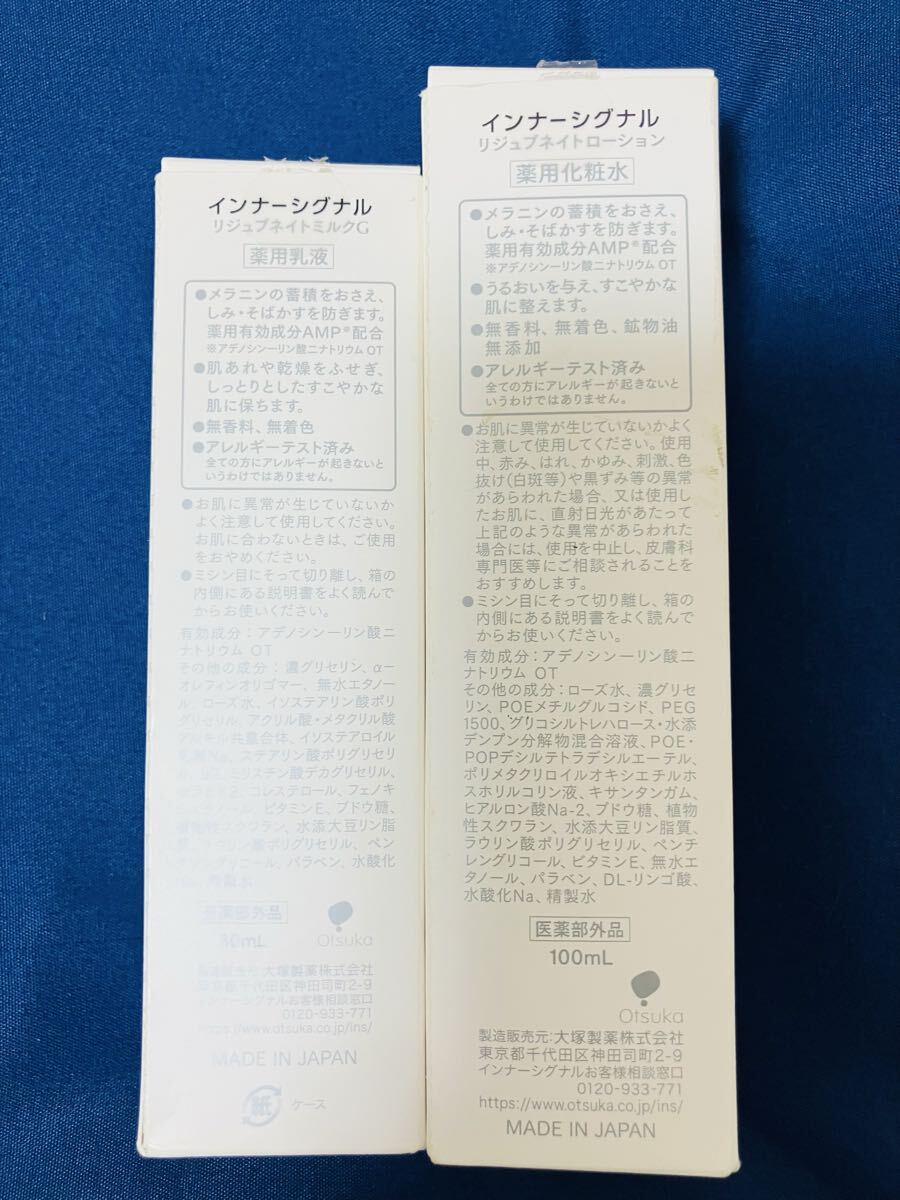 インナーシグナル
リジュブネイトミルクG
薬用乳液
●メラニンの蓄積をおさえ、
しみ・そばかすを防ぎます。
薬用有効成分AMP※配合
※アデノシン一リン酸二ナトリウム OT
●肌あれや乾燥をふせぎ、
しっとりとしたすこやかな
肌に保ちます。
●無香料、無着色
●アレルギーテスト済み
全ての方にアレルギーが起きないと
いうわけではありません。
●お肌に異常が生じていないか
よく注意して使用してください。
お肌に合わないときは、ご使用
をおやめください。
●ミシン目にそって切り離し、箱の
内側にある説明書をよく読んで
からお使いください。
有効成分：アデノシン一リン酸二
ナトリウム OT
その他の成分：濃グリセリン、α-
オレフィンオリゴマー、無水エタノー
ル、ローズ水、イソステアリン酸ポリ
グリセリル、アクリル酸・メタクリル酸
アルキル共重合体、イソステアロイル
乳酸Na、ステアリン酸ポリグリセリ
ミリスチン酸デカグリセリル、
コレステロール、フェノキ
ビタミンE、ブドウ糖、
スクワラン、水添大豆リン脂
酸ポリグリセリル、ペン
コール、パラベン、水酸化
精製水
医薬部外品
Otsuka
製造販売元：大塚製薬株式会社
東京都千代田区神田司町2-9
インナーシグナルお客様相談窓口
0120-933-771
https://www.otsuka.co.jp/ins/
MADE IN JAPAN
紙
ケース
インナーシグナル
リジュブネイトローション
薬用化粧水
●メラニンの蓄積をおさえ、
しみ・そばかすを防ぎます。
薬用有効成分AMP※配合
※アデノシン一リン酸二ナトリウム OT
●うるおいを与え、すこやかな
肌に整えます。
●無香料、無着色、鉱物油
無添加
●アレルギーテスト済み
全ての方にアレルギーが起きないと
いうわけではありません。
●お肌に異常が生じていないかよく
注意して使用してください。使用
中、赤み、はれ、かゆみ、刺激、色
抜け(白斑等)や黒ずみ等の異常
があらわれた場合、又は使用し
たお肌に、直射日光があたって
上記のような異常があらわれた
場合には、使用を中止し、皮膚科
専門医等にご相談されることを
おすすめします。
●ミシン目にそって切り離し、箱の
内側にある説明書をよく読んで
からお使いください。
有効成分：アデノシン一リン酸二
ナトリウム OT
その他の成分：ローズ水、濃グリセ
リン、POEメチルグルコシド、PEG
1500、グリコシルトレハロース・水添
デンプン分解物混合溶液、POE・
POPデシルテトラデシルエーテル、
ポリメタクリロイルオキシエチルホ
スホリルコリン液、キサンタンガム、
ヒアルロン酸Na-2、ブドウ糖、植物
性スクワラン、水添大豆リン脂質、
ラウリン酸ポリグリセリル、ペンチ
レングリコール、ビタミンE、無水エ
タノール、パラベン、DL-リンゴ酸、
水酸化Na、精製水
医薬部外品
100mL
Otsuka
製造販売元：大塚製薬株式会社
東京都千代田区神田司町2-9
インナーシグナルお客様相談窓口
0120-933-771
https://www.otsuka.co.jp/ins/
MADE IN JAPAN